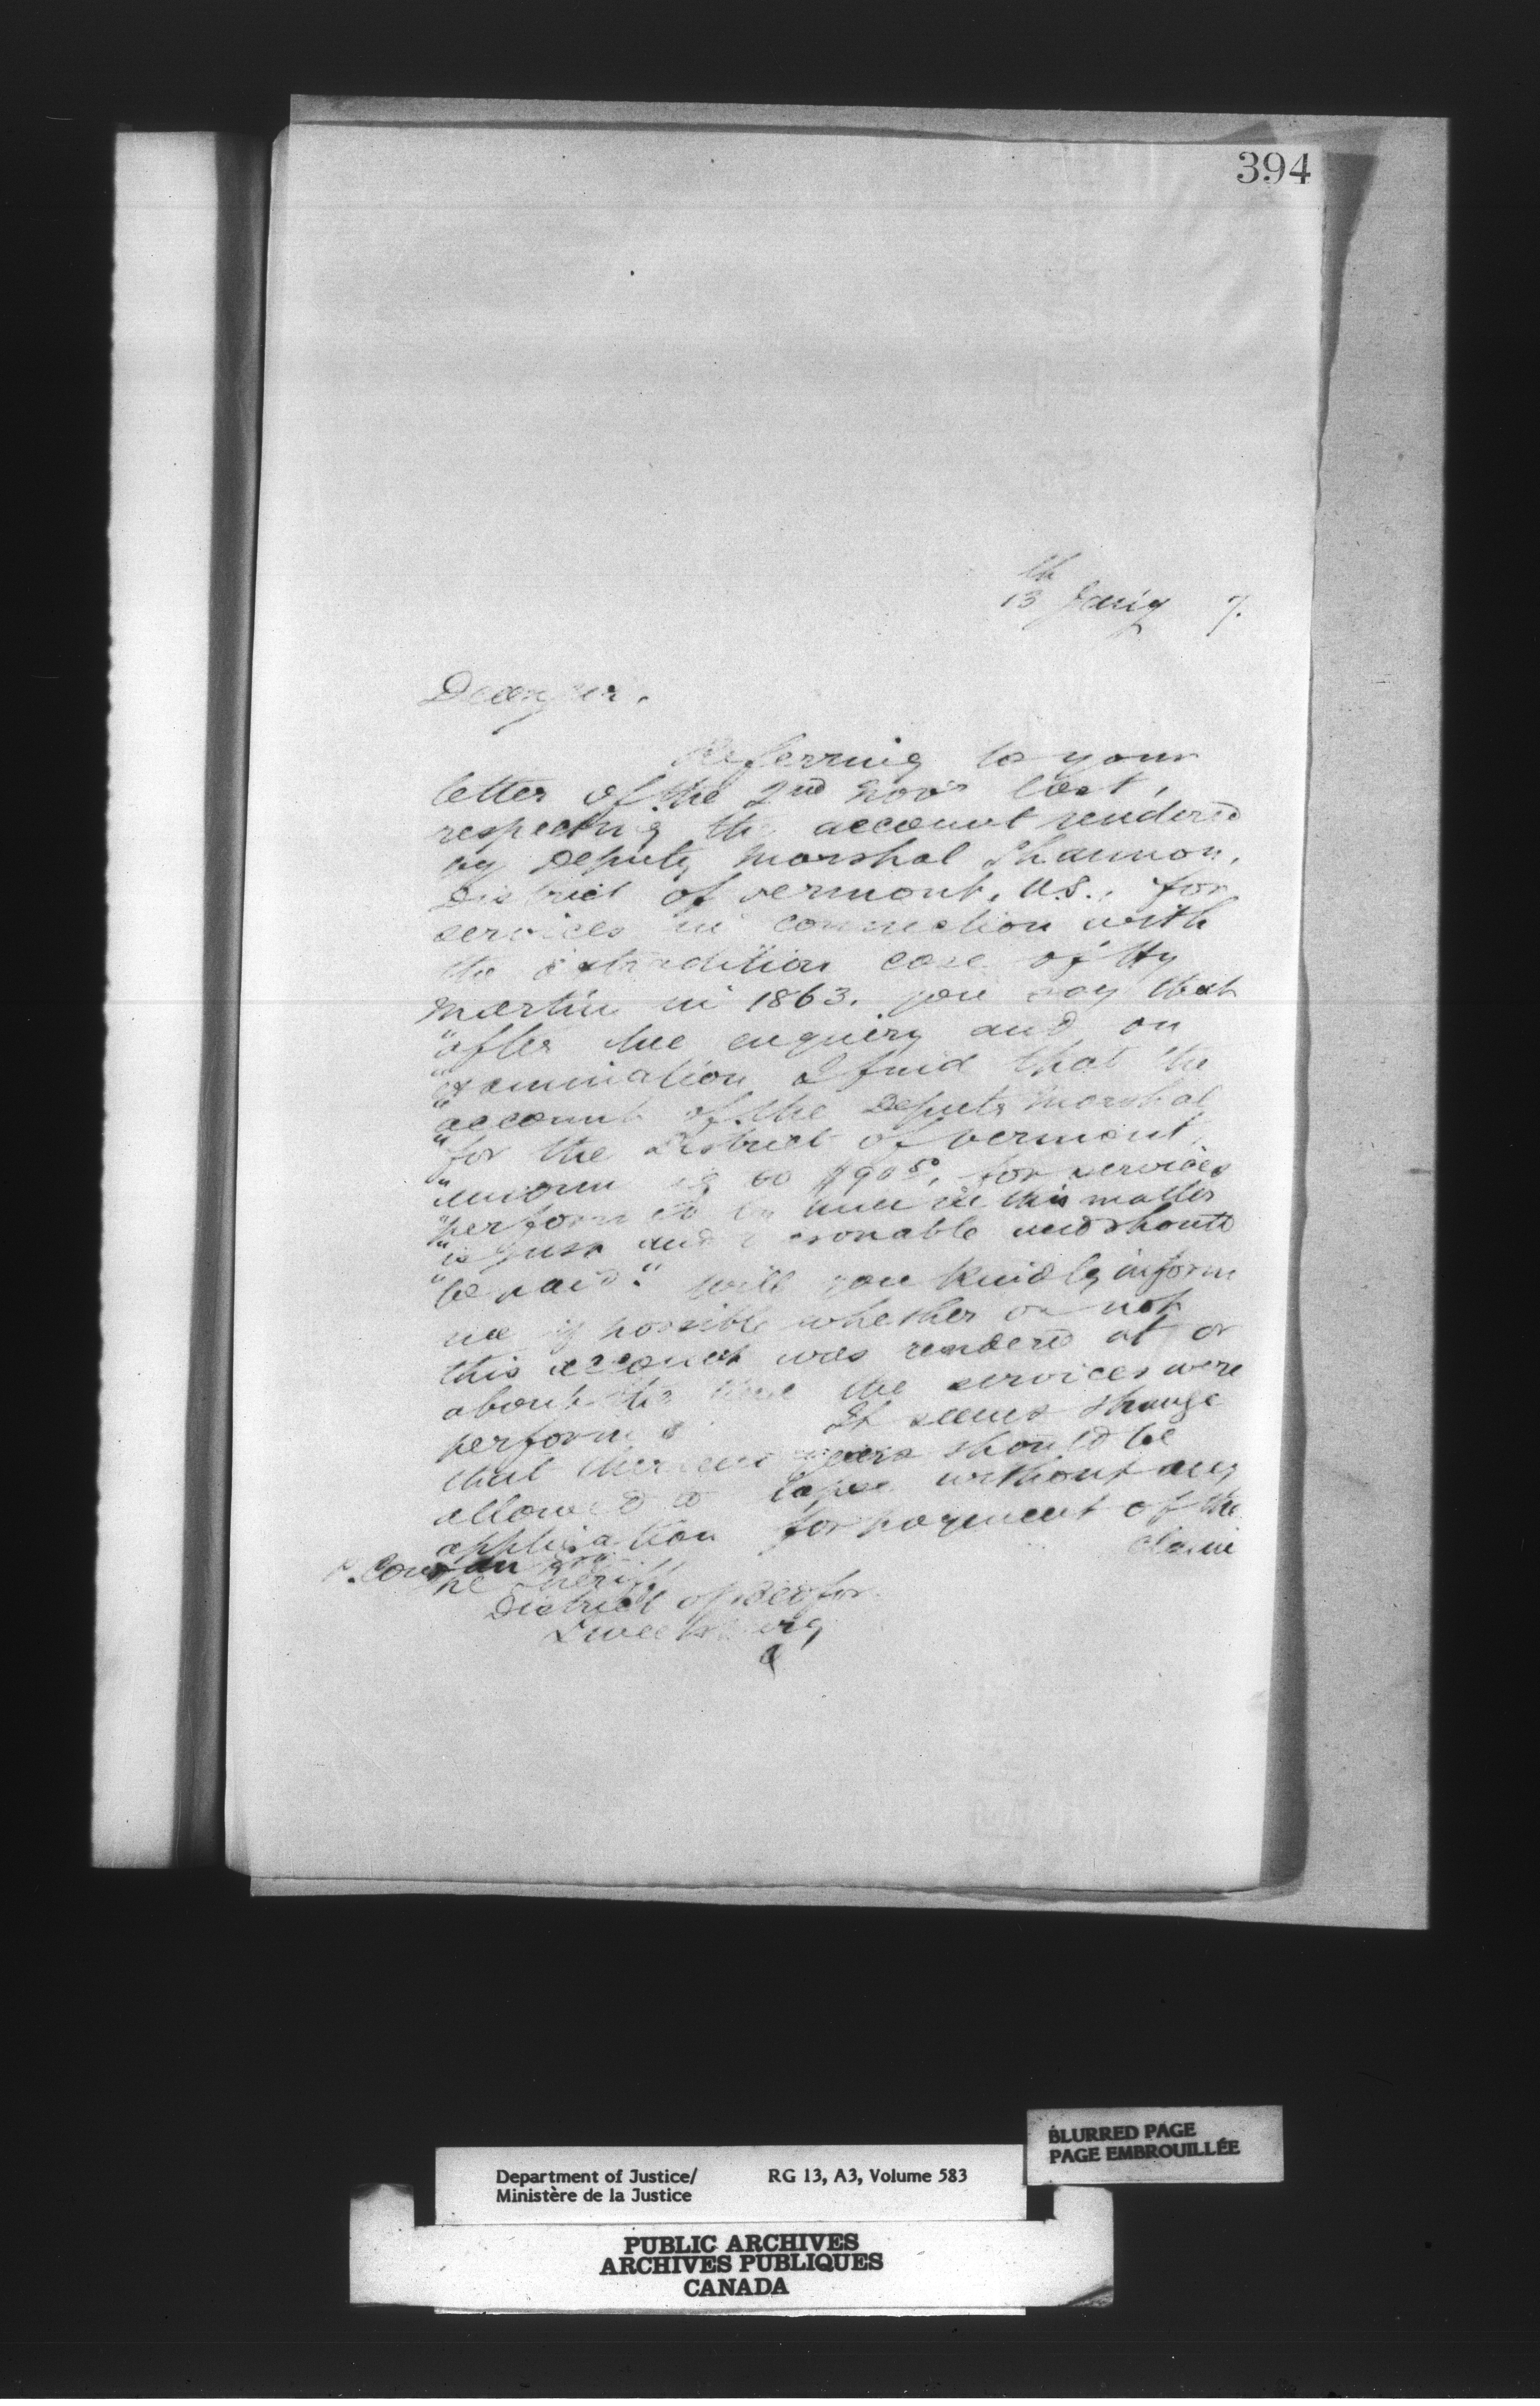 394
13th Jany 7.
Dear Sir,
Referring to your
letter of the 2nd Novr last,
respecting the account rendered
by Deputy Marshal Shannon,
District of Vermont, U.S., for
services in connection with
the extradition case of Hy
Martin in 1863. you say that
"after due enquiry and on
"examination I find that the
"account of the Deputy Marshal
"for the District of Vermont,
"amounting to $90 50, for services
"performed by him in this matter
"is just and reasonable and should
"be paid." Will you kindly inform
me if possible whether or not
this account was rendered at or
about the time the services were
performed It seems strange
that thirteen years should be
allowed to lapse without any
application for payment of the
claim
P. Cowan Esq
The Sheriff
District of Bedford
Sweetsburg
Q
BLURRED PAGE
PAGE EMBROUILLÉE
Department of Justice/ RG 13, A3, Volume 583
Ministère de la Justice
PUBLIC ARCHIVES
ARCHIVES PUBLIQUES
CANADA